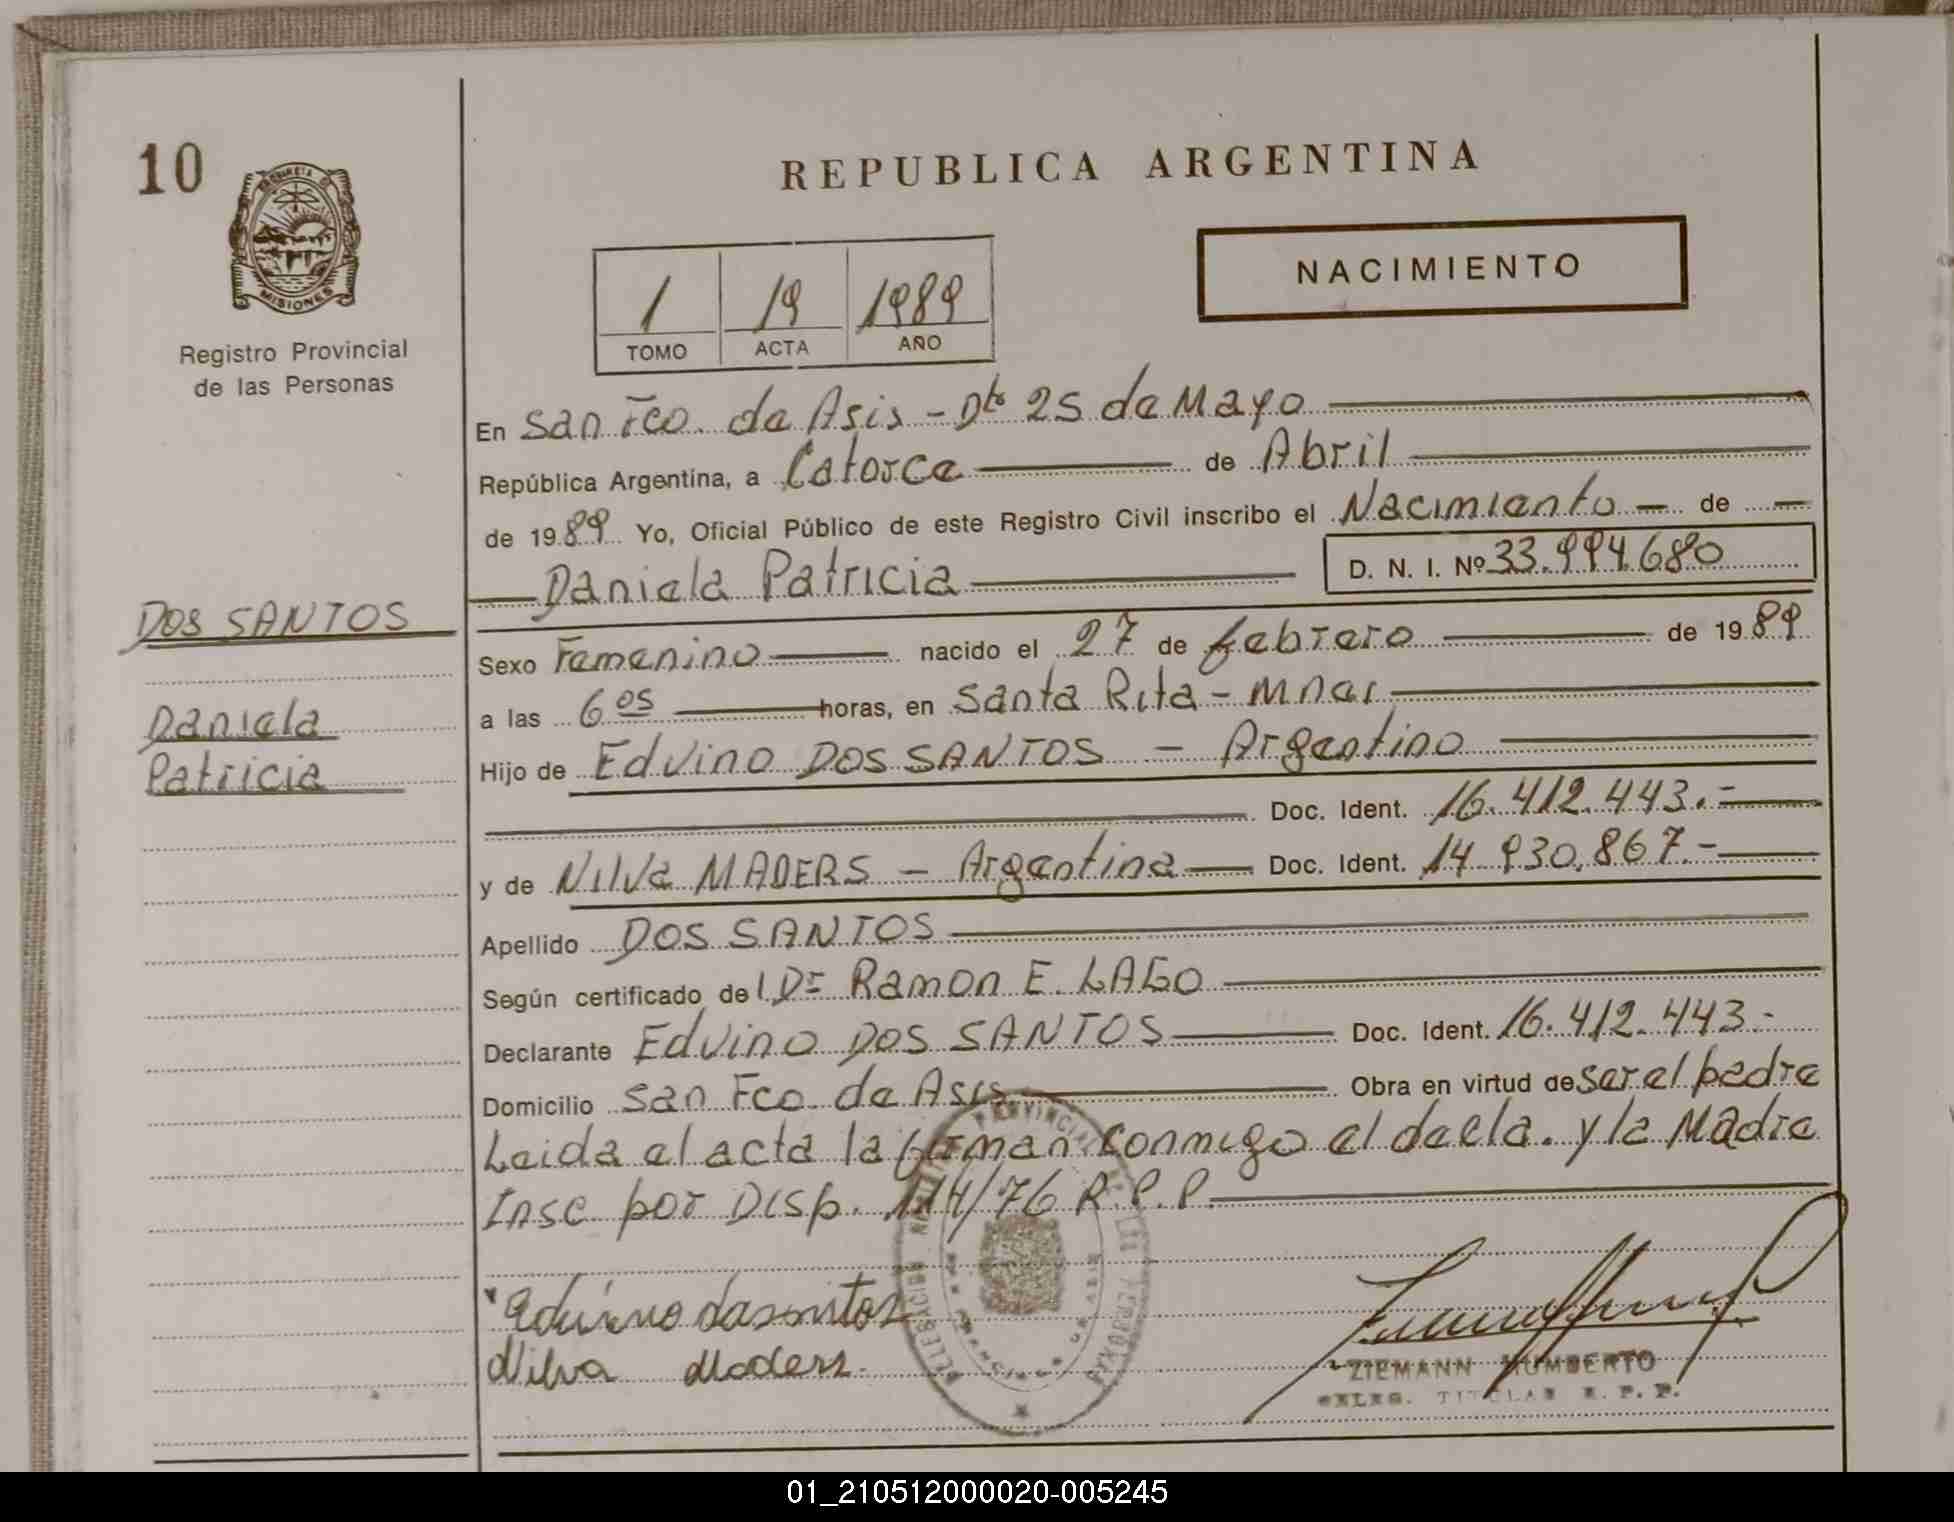 10
MISIONES
Registro Provincial
de las Personas
REPUBLICA ARGENTINA
1 19 1989
TOMO ACTA AÑO
NACIMIENTO
En San Fco. de Asis - Dto 25 de Mayo
República Argentina, a Catorce de Abril
de 1989 Yo, Oficial Público de este Registro Civil inscribo el Nacimiento de
Daniela Patricia D. N. I. Nº 33.994.680
DOS SANTOS
Daniela
Patricia
Sexo Femenino nacido el 27 de febrero de 1989
a las 6 os horas, en Santa Rita - Mnes
Hijo de Edvino DOS SANTOS - Argentino
Doc. Ident. 16.412.443.-
y de Nilva MADERS - Argentina Doc. Ident. 14.930.867.-
Apellido DOS SANTOS
Según certificado del Dr Ramon E. LAGO
Declarante Edvino DOS SANTOS Doc. Ident. 16.412.443.-
Domicilio San Fco. de Asis Obra en virtud de ser el padre
Leida el acta la firman conmigo el decla. y la Madre
Insc por Disp. 114/76 R.P.P.
Nilva Maders
ZIEMANN HUMBERTO
DELEG. TITULAR R. P. P.
01_210512000020-005245